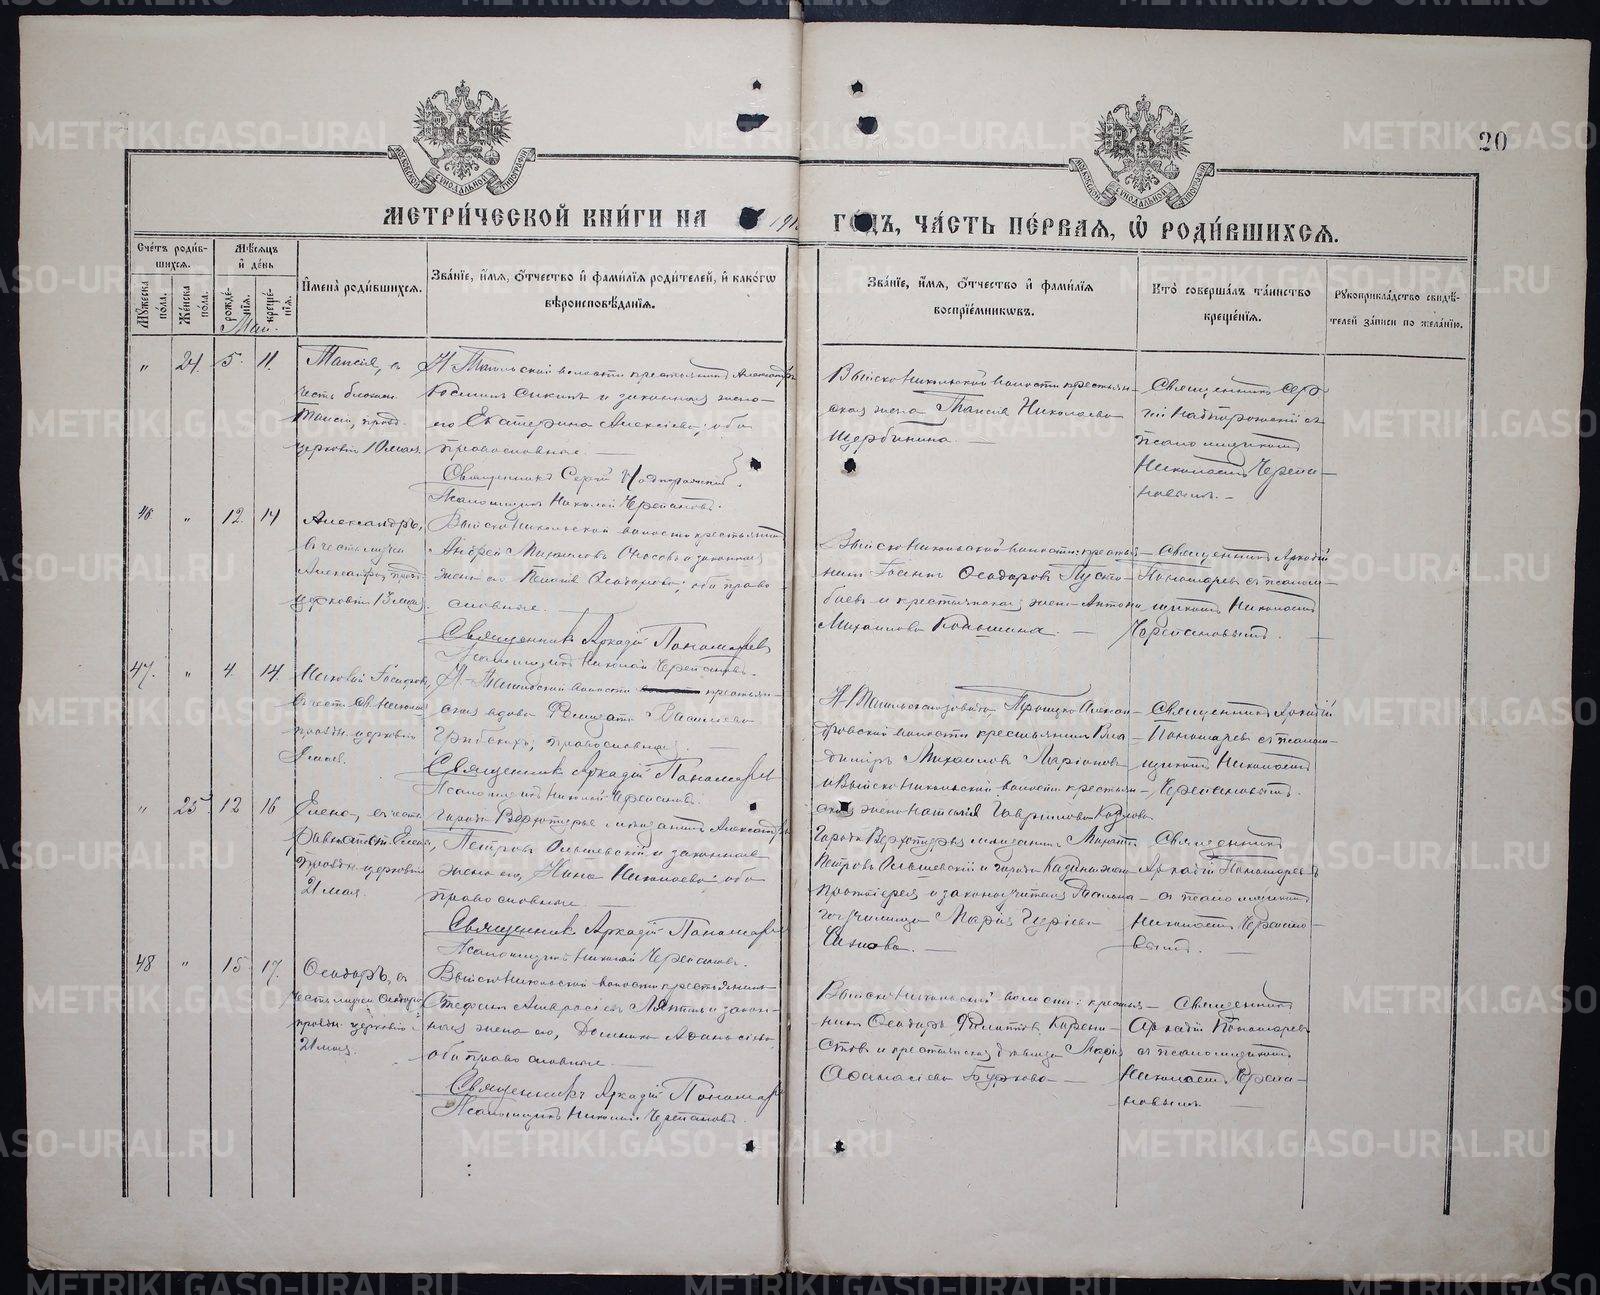 МЕТРИ́ЧЕСКОЙ КНИ́ГИ НА 191 ГО́ДЪ, ЧА́СТЬ ПЕ́РВАЯ, Ѡ҆ РОДИ́ВШИХСЯ.
20
МОСКОВСКОЙ СѴНОДАЛЬНОЙ ТИПОГРАФІИ
МОСКОВСКОЙ СѴНОДАЛЬНОЙ ТИПОГРАФІИ
Сче́тъ роди́вшихся.
Мꙋ́жеска по́ла.
Же́нска по́ла.
Мѣ́сяцъ и҆ де́нь
рожде́нїя.
креще́нїя.
И҆мена̀ роди́вшихся.
Зва́нїе, и҆́мя, ѻ҆́тчество и҆ фами́лїя роди́телей, и҆ како́гѡ вѣроисповѣ́данїя.
Зва́нїе, и҆́мя, ѻ҆́тчество и҆ фами́лїя воспрїе́мниковъ.
Кто̀ соверша́лъ та́инство креще́нїя.
Рꙋкоприкла́дство свидѣ́телей за́писи по жела́нїю.
Май.
" 24 5. 11.
Таисія, въ
честь блажен.
Таисіи, празд.
церковію 10 мая
Н Тагильской волости крестьянинъ Александръ
и законная жена
его Екатерина Алексѣева; оба
православные.
Священникъ Сергій Надпорожскій.
Псаломщикъ Николай Черепановъ.
Выйско Никольской волости крестьян-
ская жена Таисія Николаева
Щербинина.
Священникъ Сер-
гій Надпорожскій съ
псаломщикомъ
Николаемъ Черепа-
новымъ.
46 " 12. 14
Александръ,
въ честь мучен.
Александра, празд.
церковію 13 мая.
Выйско Никольской волости крестьянинъ
Андрей Михаиловъ и законная
жена его Пелагія; оба право-
славные.
Священникъ Аркадій Пономаревъ
Псаломщикъ Николай Черепановъ.
Выйско Никольской волости: крестья-
нинъ Ѳеодоровъ Пусто-
баевъ и крестьянская жена Антонина
Михаилова Коньшина.
Священникъ Аркадій
Пономаревъ съ псалом-
щикомъ Николаемъ
Черепановымъ.
47. " 4 14.
въ честь Св. Николая
праздн. церковію
9 мая.
Н-Тагильской волости крестьян-
ская вдова Васильева
православная.
Священникъ Аркадій Пономаревъ
Псаломщикъ Николай Черепановъ.
Н Тагильскаго завода, Троицко Алексан-
дровской волости крестьянинъ Вла-
диміръ Михаиловъ Ларіоновъ
и Выйско Никольской волости крестьян-
ская жена Наталія Гаврилова Козлова.
Священникъ Аркадій
Пономаревъ съ псалом-
щикомъ Николаемъ
Черепановымъ.
" 25. 12 16
Елена, въ честь
Равноапост. Елены,
праздн. церковію
21 мая.
Города Верхотурья мѣщанинъ Александръ
Петровъ Ольшевскій и законная
жена его Нина Николаева; оба
православные.
Священникъ Аркадій Пономаревъ
Псаломщикъ Николай Черепановъ.
Города Верхотурья мѣщанинъ
Петровъ Ольшевскій и города Казани жена
протоіерея и законоучителя
училища Марія Гуріева
Священникъ
Аркадій Пономаревъ
съ псаломщикомъ
Николаемъ Черепано-
вымъ.
48 " 15. 17.
Ѳеодоръ, въ
честь мучен. Ѳеодора,
праздн. церковію
21 мая.
Выйско Никольской волости крестьянинъ
Стефанъ и закон-
ная жена его, Домника Аѳанасіева,
оба православные
Священникъ Аркадій Пономаревъ
Псаломщикъ Николай Черепановъ.
Выйско Никольской волости: крестья-
нинъ Ѳеодоръ Филипповъ
и крестьянская дѣвица Марія
Аѳанасіева Буркова
Священникъ
Аркадій Пономаревъ
съ псаломщикомъ
Николаемъ Черепа-
новымъ.
METRIKI.GASO-URAL.RU